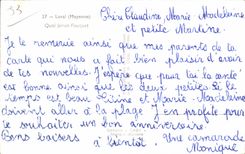 33
17 - Laval (Mayenne)
Chère Claudine, Marie Madeleine
et petite Martine.
Je te remercie ainsi que mes parents de ta
carte qui nous a fait bien plaisir d'avoir
de tes nouvelles. J'espère que pour toi la santé
est bonne, ainsi que les deux petites. Si le
temps est beau et Marie-Madeleine
doivent aller à la plage. J'en profite pour
te souhaiter un bon anniversaire.
Bons baisers à bientôt. Une camarade
Monique